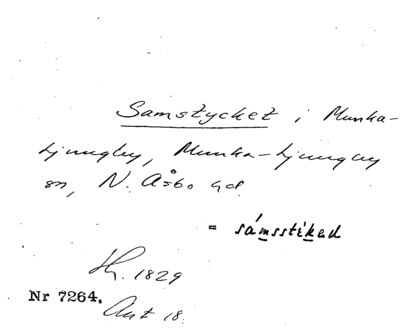 Samstycket i Munka-
Ljungby, Munka-Ljungby
sn, N. Åsbo hd.
= sámsstikad
Lh. 1829
Nr 7264.
Akt 18.